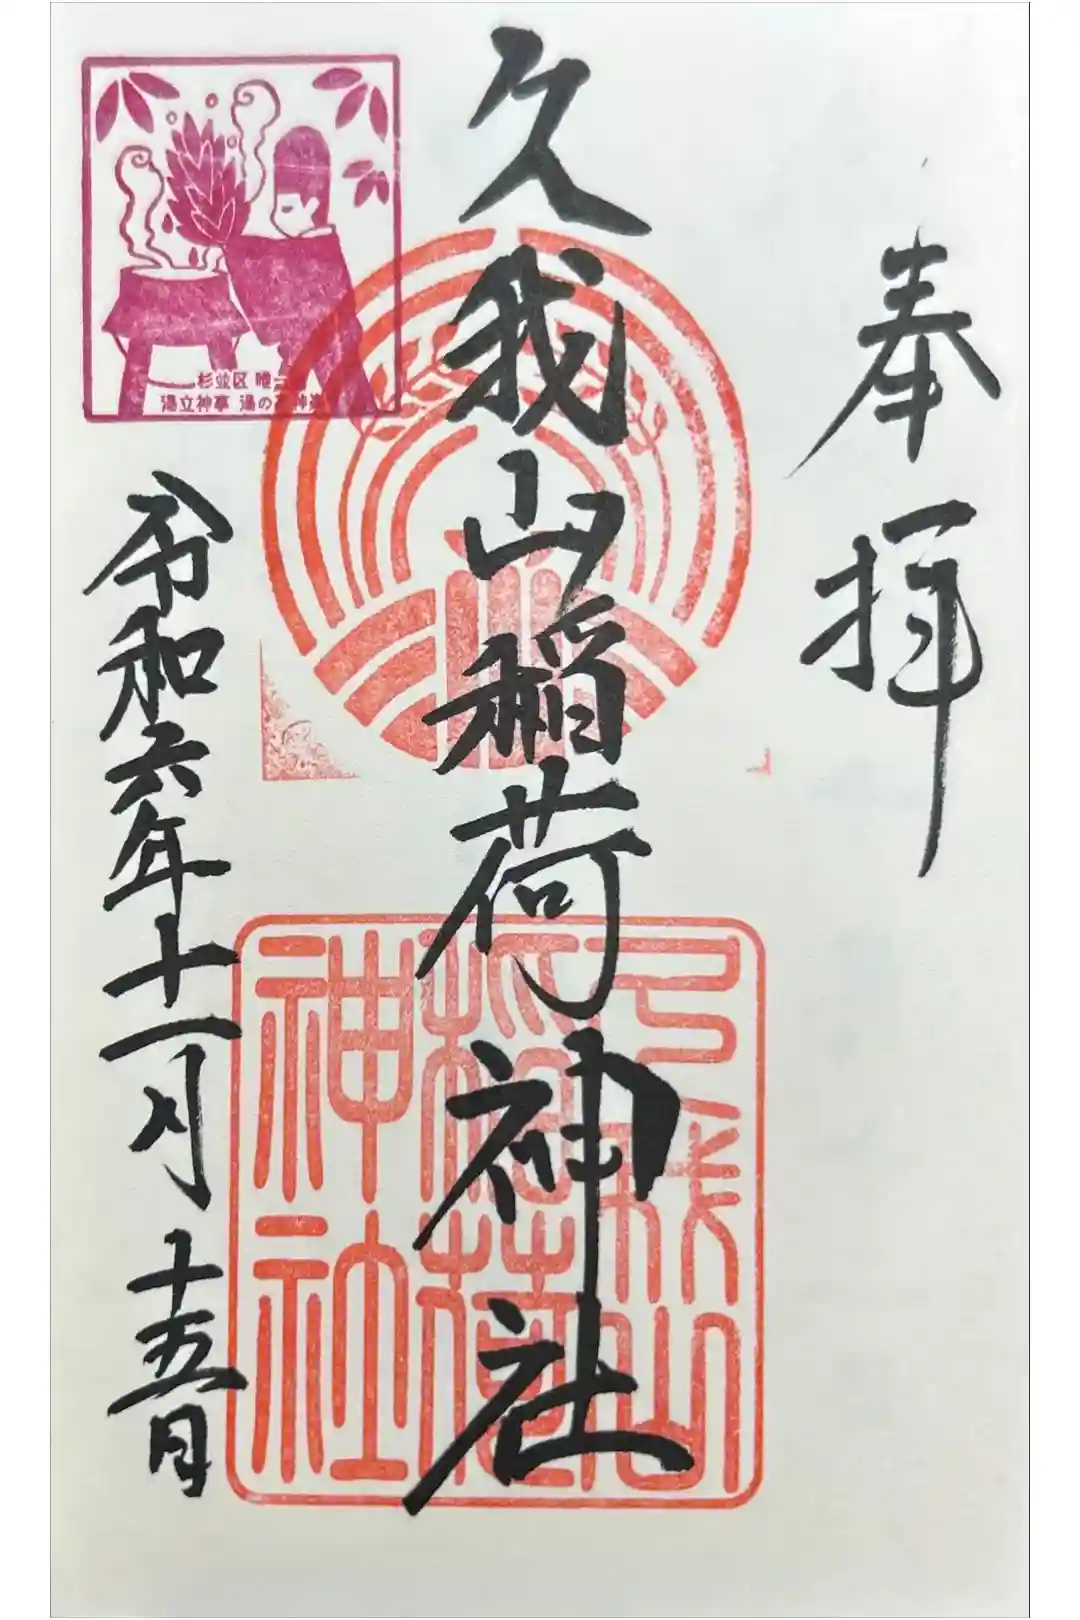 奉拝
久我山稲荷神社
久我山
稲荷
神社
杉並区 唯一
湯立神事 湯の花神楽
令和六年十一月十五日